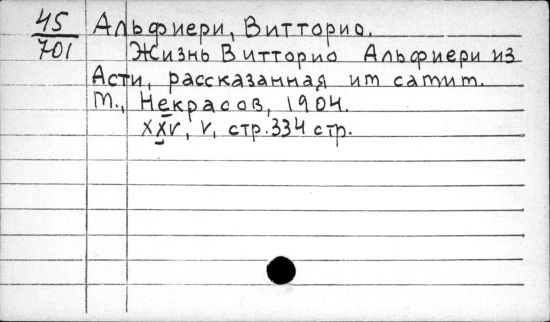 45 Альфиери, Витторио.
701 Жизнь Витторио Альфиери из
Асти, рассказанная им самим.
М., Некрасов, 1904.
XXV, V, стр. 334 стр.